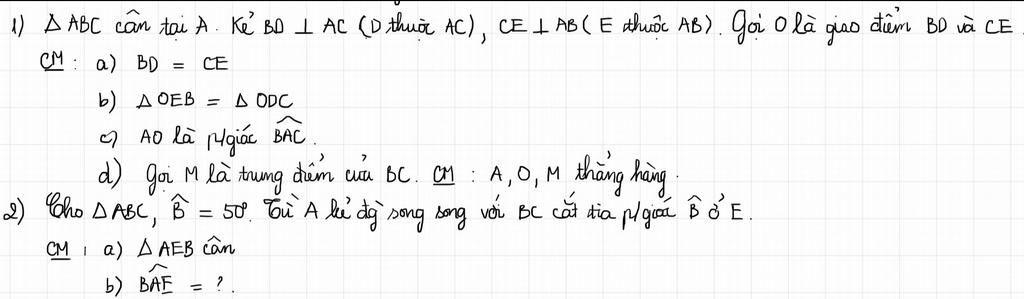 1) Δ ABC cân tại A. Kẻ BD ⊥ AC (D thuộc AC), CE ⊥ AB (E thuộc AB). Gọi O là giao điểm BD và CE.
CM : a) BD = CE
b) Δ OEB = Δ ODC
c) AO là p/giác \widehat{BAC}.
d) Gọi M là trung điểm của BC. CM : A, O, M thẳng hàng.
2) Cho Δ ABC, \widehat{B} = 50°. Từ A kẻ đg` song song với BC cắt tia p/giác \widehat{B} ở E.
CM : a) Δ AEB cân
b) \widehat{BAE} = ?.